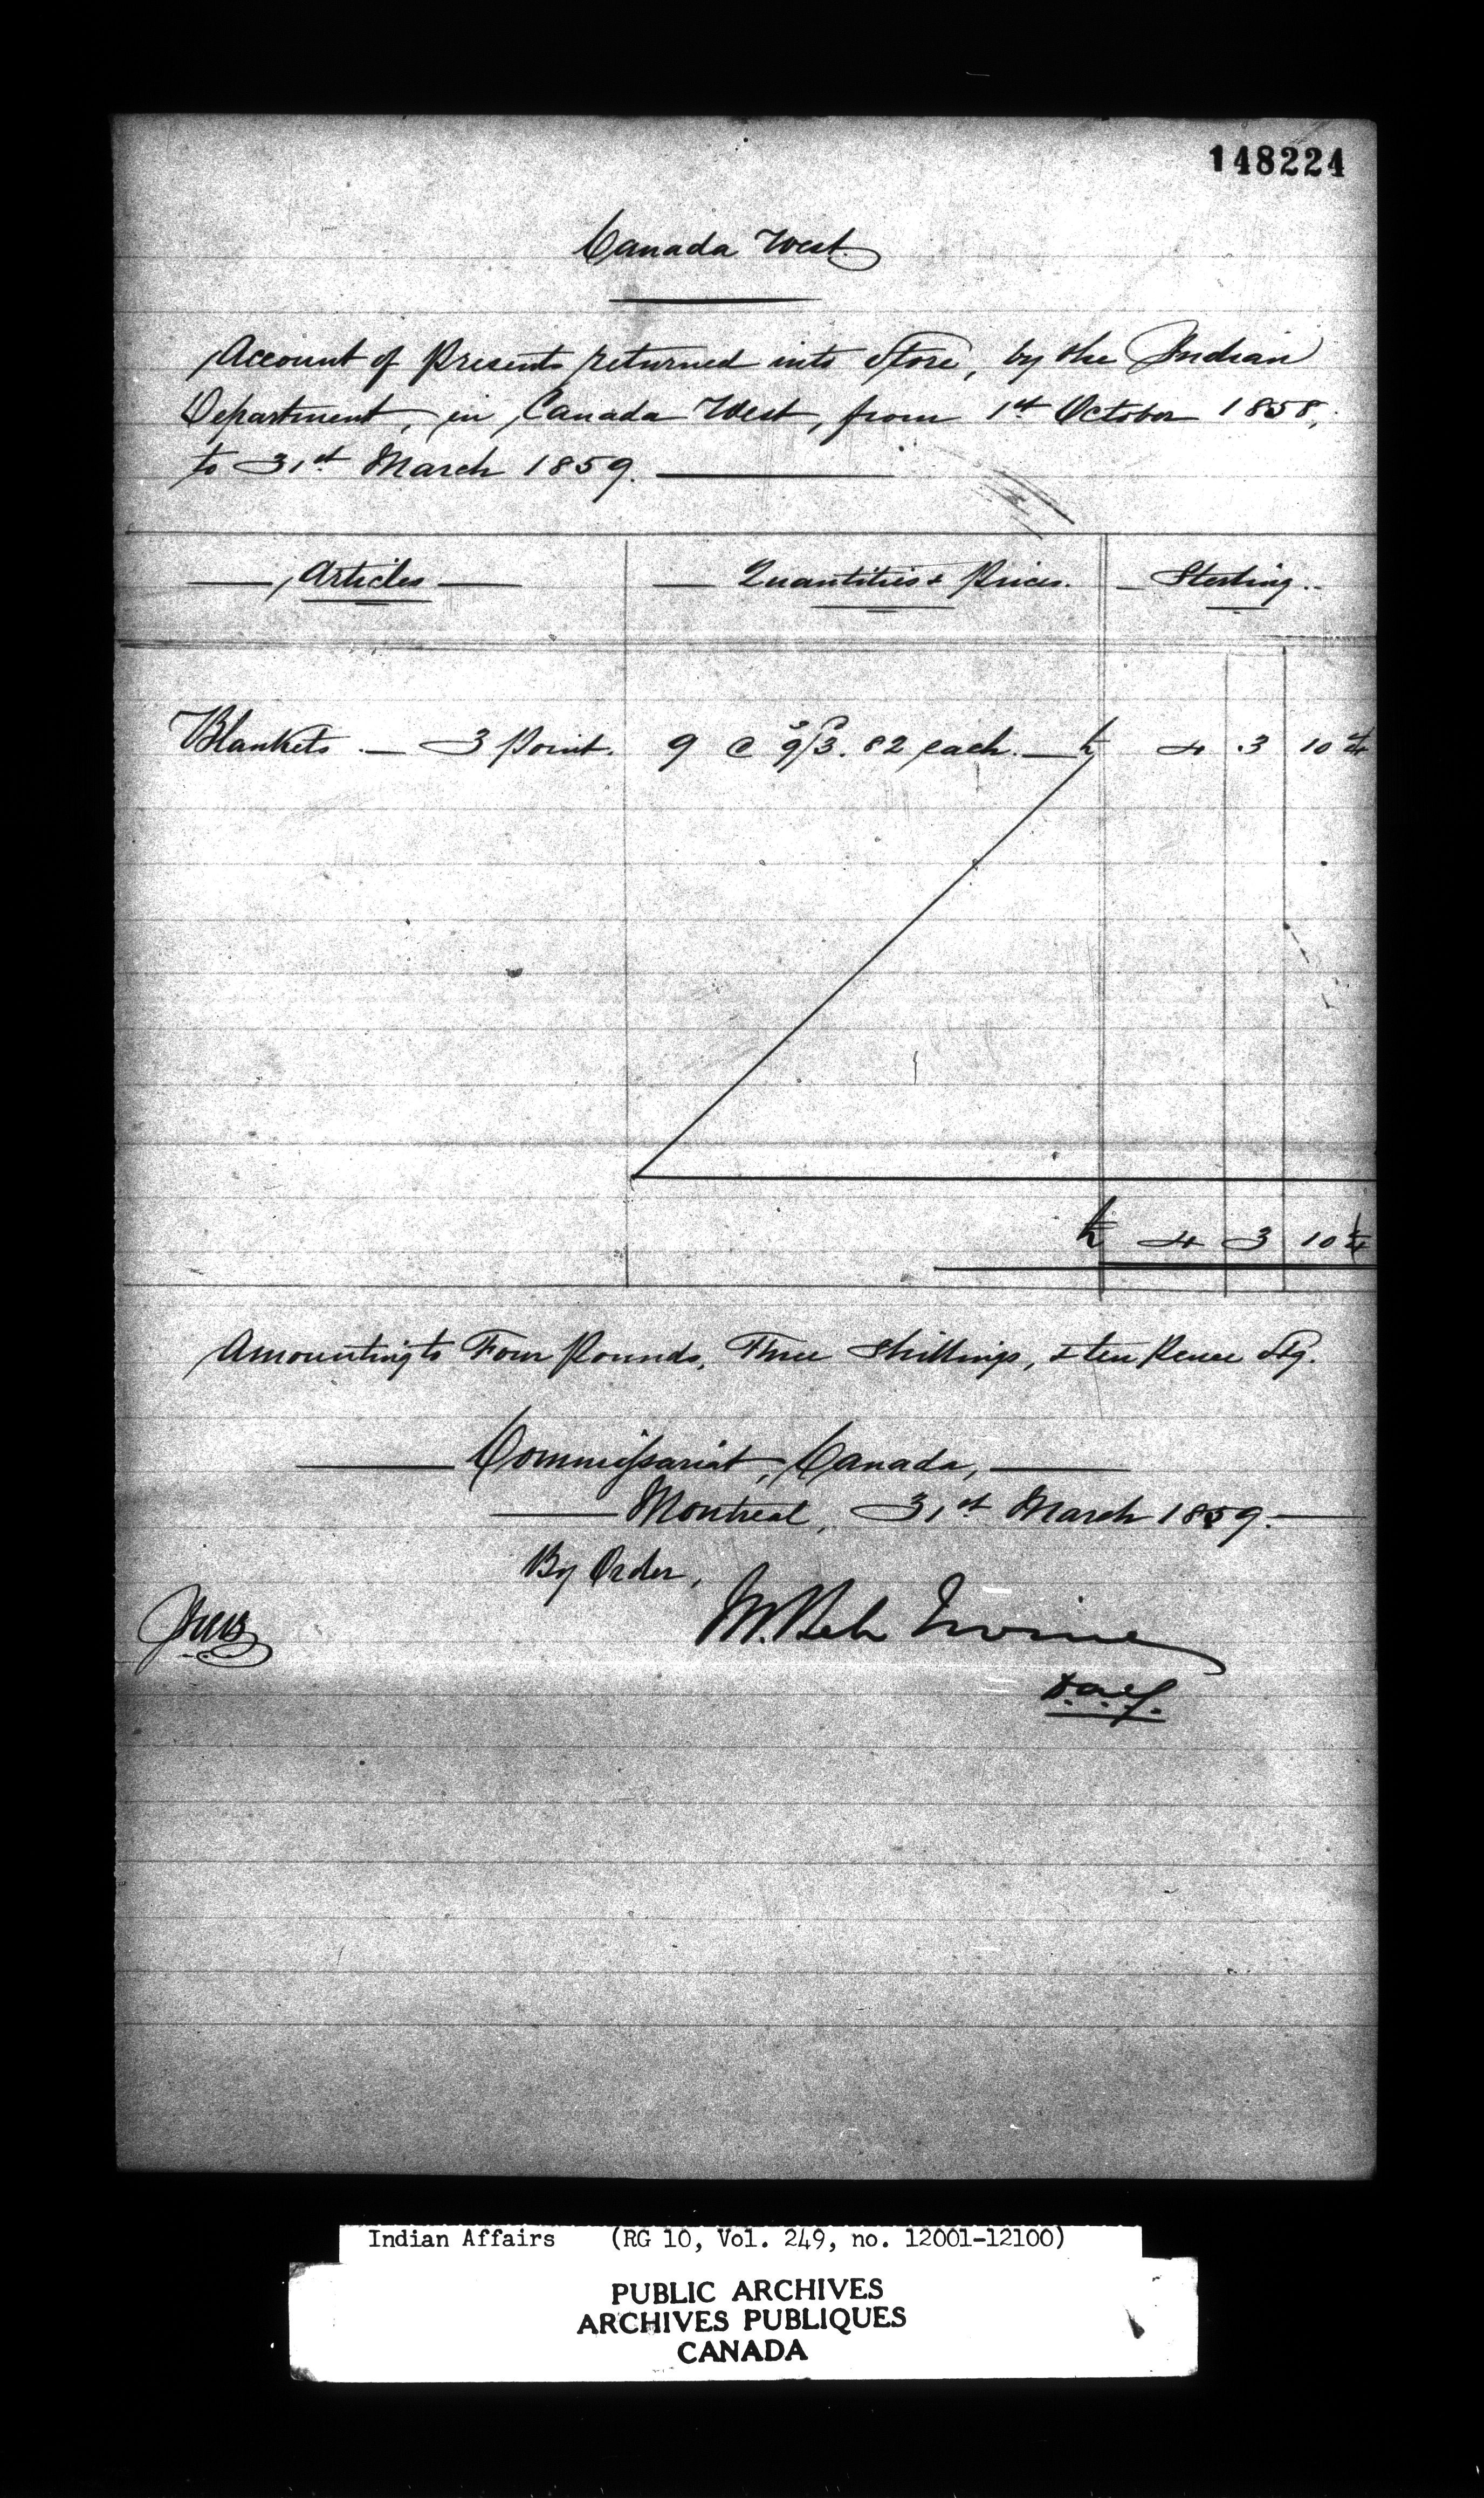 148224
Canada West.
Account of Presents returned into Store, by the Indian
Department, in Canada West, from 1st October 1858,
to 31st March 1859.
Articles Quantities & Prices. Sterling..
Blankets. — 3 Point. 9 @ 9/3.82 each. — £ 4 3 10 1/4
£ 4 3 10 1/4
Amounting to Four Pounds, Three Shillings, & ten Pence Stg.
Commissariat, Canada,
Montreal, 31st March 1859.
By Order,
Irvine
Indian Affairs (RG 10, Vol. 249, no. 12001-12100)
PUBLIC ARCHIVES
ARCHIVES PUBLIQUES
CANADA